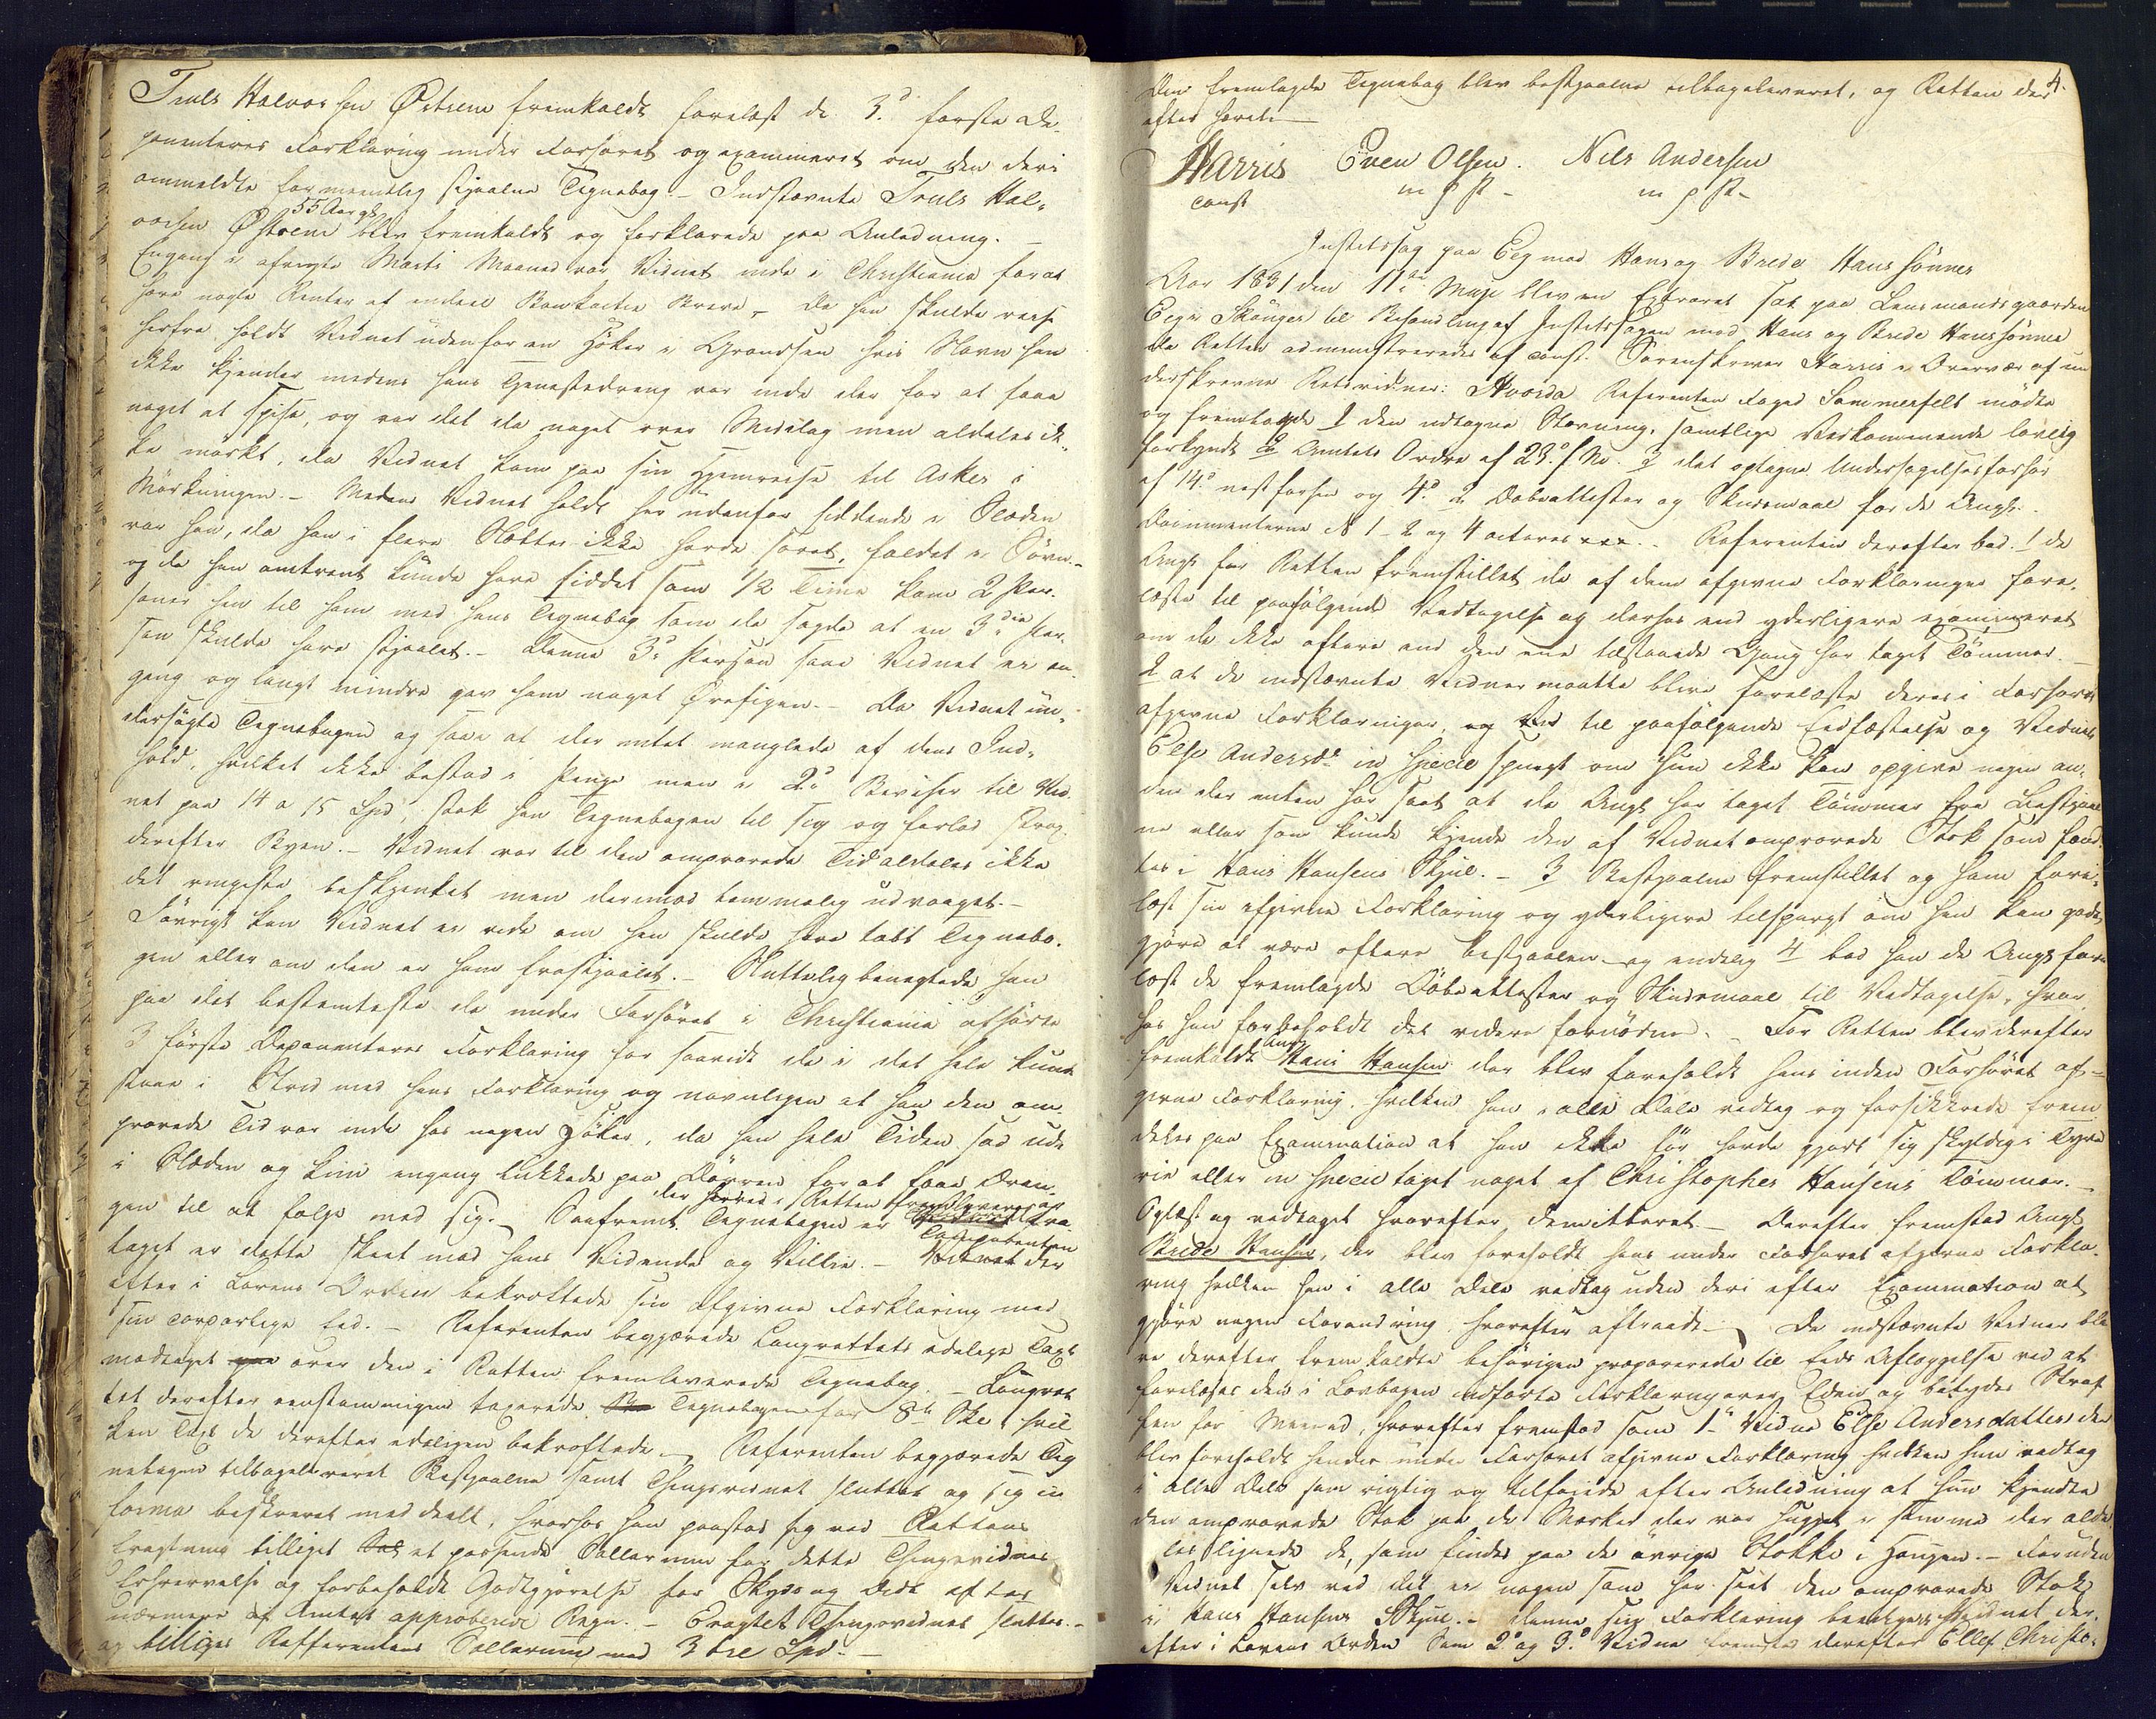 Truls Halvorsen Østrem fremkaldt forelæst de 3de første De-
ponenteres Forklaring under Forhøret og examineret om den deri
ommeldte formeentlig stjaalne Tegnebog. - Indstævnte Truls Hal-
vorsen Østrem 55 Aar gl. blev fremkaldt og forklarede paa Anledning. -
Engang i afvigte Marts Maaned var Vidnet inde i Christiania for at
hæve nogle Renter af endeel Bankactie Breve, - Da han skulde reise
herfra holdt Vidnet udenfor en Höker i Grændsen hvis Navn han
ikke kjender medens hans Tjenestedreng var inde der for at faae
noget at spise, og var det da noget over Middag men aldeles ik-
ke mörkt, da Vidnet kom paa sin Hjemreise til Asker i
Mörkningen. - Medens Vidnet holdt her udenfor siddende i Slæden
var han, da han i flere Nætter ikke havde sovet, faldet i Søvn. -
og da han omtrent kunde have siddet som 1/2 Time kom 2 Per-
soner hen til ham med hans Tegnebog som de sagde at en 3die Per-
son skulde have stjaalet. - Denne 3die Person saae Vidnet ei en-
gang og langt mindre gav ham noget Ørefigen. - Da Vidnet un-
dersögte Tegnebogen og saae at der intet manglede af dens Ind-
hold, hvilket ikke bestod i Penge men i 2de Beviser til Vid-
net paa 14 a 15 Spd, stak han Tegnebogen til sig og forlod strax
derefter Byen. - Vidnet var til den ompraovede Tid aldeles ikke
det ringeste beskjenket men derimod temmelig udvaaget. -
Iövrigt kan Vidnet ei vide om han skulde have tabt Tegnebo-
gen eller om den er ham frastjaalet. - Sluttelig benegtede han
paa det bestemteste de under Forhøret i Christiania afhörte
3 förste Deponenteres Forklaring for saavidt de i det hele kunde
staae i Strid med hans Forklaring og navnligen at han den om-
provede Tid var inde hos nogen Höker, da han hele Tiden sad ude
i Slæden og kun engang lukkede paa Dørren for at faae Dren-
gen til at følge med sig. - Saafremt Tegnebogen der herved i Retten fremleveres af Comparenten er fra-
taget er dette skeet mod hans Vidende og Villie. - Vidnet der-
efter i Lovens Orden bekræftede sin afgivne Forklaring med
sin corporlige Eed. - Referenten begjærede Laugrettets edelige Taxt
modtaget over den i Retten fremleverede Tegnebog. - Laugret-
tet derefter eenstemmigen taxerede Tegnebogen for 8te Sk, hvil-
ken Taxt de derefter edeligen bekræftede. - Referenten begjærede Teg-
nebogen tilbageleveret Bestjaalne samt Thingsvidnet sluttet og sig in
forma beskrevet meddeelt, hvorhos han paastod sig ved Rettens
Eragtning billiget et passende Sallarium for dette Thingsvidnes
Erhvervelse og forbeholdt Godtgjørelse for Skyds og Diæt efter
nærmere af Amtet approberede Regn. - Eragtet Thingsvidnet sluttes. -
og billiges Refferentens Sallarium med 3 tre Spd. -
4.
Den fremlagde Tegnebog blev bestjaalne tilbageleveret, og Retten der-
efter hævet. -
Harris Even Olsen. Nils Andersen
const m p P - m p P -
Justitssag paa Eeg mod Hans og Brede Hanssönner
Aar 1831 den 17de Maji blev en Extraret sat paa Lensmandsgaarden
Eegn Skånger til Behandling af Justitssagen mod Hans og Brede Hanssönner
da Retten administreredes af const. Sorenskriver Harris i Overvær af un-
derskrevne Retsvidner: Hvorda Referenten Foged Sommerfelt mödte
og fremlagde 1 den udtagne Stævning, samtlige Vedkommende lovlig
forkyndt 2 Amtets Ordre af 23de f. M. 3 det optagne Undersøgelsesforhør
af 14de næstforhen og 4de 2 Døbeattester og Skudsmaal for de Angl. -
Documenterne № 1 - 2 og 4 acteres xxx. - Referenten derefter bad. 1 de
Angl. for Retten fremstillet de af dem afgivne Forklaringer fore-
læste til paafølgende Vedtagelse og derhos end yderligere examineret
om de ikke oftere end den ene tilstaaede Gang har taget Tömmer. -
2 at de indstævnte Vidner maatte blive forelæste deres i Forhøret
afgivne Forklaringer, og til paafølgende Eedfæstelse og Vidnet
Else Andersdr. in specie spurgt om hun ikke kan opgive nogen an-
den der enten har seet at de Angl. har taget Tömmer fra Bestjaal-
ne eller som kunde kjende den af Vidnet omprovede Stok som fand-
tes i Hans Hansens Skjul. - 3 Bestjaalne fremstillet og ham fore-
læst sin afgivne Forklaring og yderligere tilspurgt om han kan godt-
gjøre at være oftere bestjaalen - og endelig 4 bad han de Angl. fore-
læst de fremlagde Döbeattester og Skudsmaal til Vedtagelse, hvor-
hos han forbeholdt det videre fornödne. - For Retten blev derefter
fremkaldt Angl. Hans Hansen der blev foreholdt hans inden Forhöret af-
givne Forklaring, hvilken han i alle Dele vedtog og forsikkrede frem-
deles paa Examination at han ikke för havde gjort sig skyldig i Tyve-
rie eller in specie taget noget af Christopher Hansens Tömmer. -
Oplæst og vedtaget hvorefter demitteret. - Derefter fremstod Angl.
Brede Hansen, der blev foreholdt hans under Forhøret afgivne Forkla-
ring hvilken han i alle Dele vedtog uden deri efter Examination at
gjöre nogen Forandring, hvorefter aftraadt. - De indstævnte Vidner ble-
ve derefter fremkaldte behörigen præparerede til Eeds Aflæggelse ved at
forelæses den i Lovbogen indførte Forklaring over Eden og betydes Straf-
fen for Meened, hvorefter fremstod som 1te Vidne Else Andersdatter der
blev foreholdt hendes under Forhøret afgivne Forklaring hvilken hun vedtog
i alle Dele som rigtig og tilföiede efter Anledning at hun kjendte
den omprovede Stok paa de Mærker der var hugget i samme der alde-
les lignede de, som findes paa de övrige Stokke i Haugen. - Foruden
Vidnet selv ved det ei nogen som har seet den omprovede Stok
i Hans Hansens Skjul. - Denne sin Forklaring beediges Vidnet der-
efter i Lovens Orden Som 2de og 3de Vidne fremstod derefter Ellef Christo-